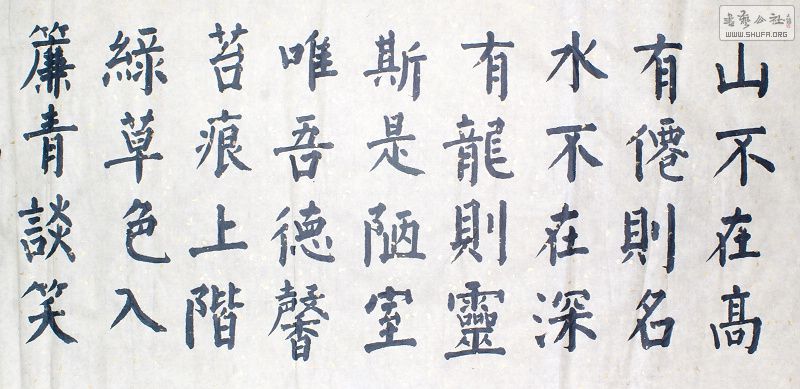 山不在高
有僊則名
水不在深
有龍則靈
斯是陋室
唯吾德馨
苔痕上階
綠草色入
簾青談笑
书艺公社
WWW.SHUFA.ORG